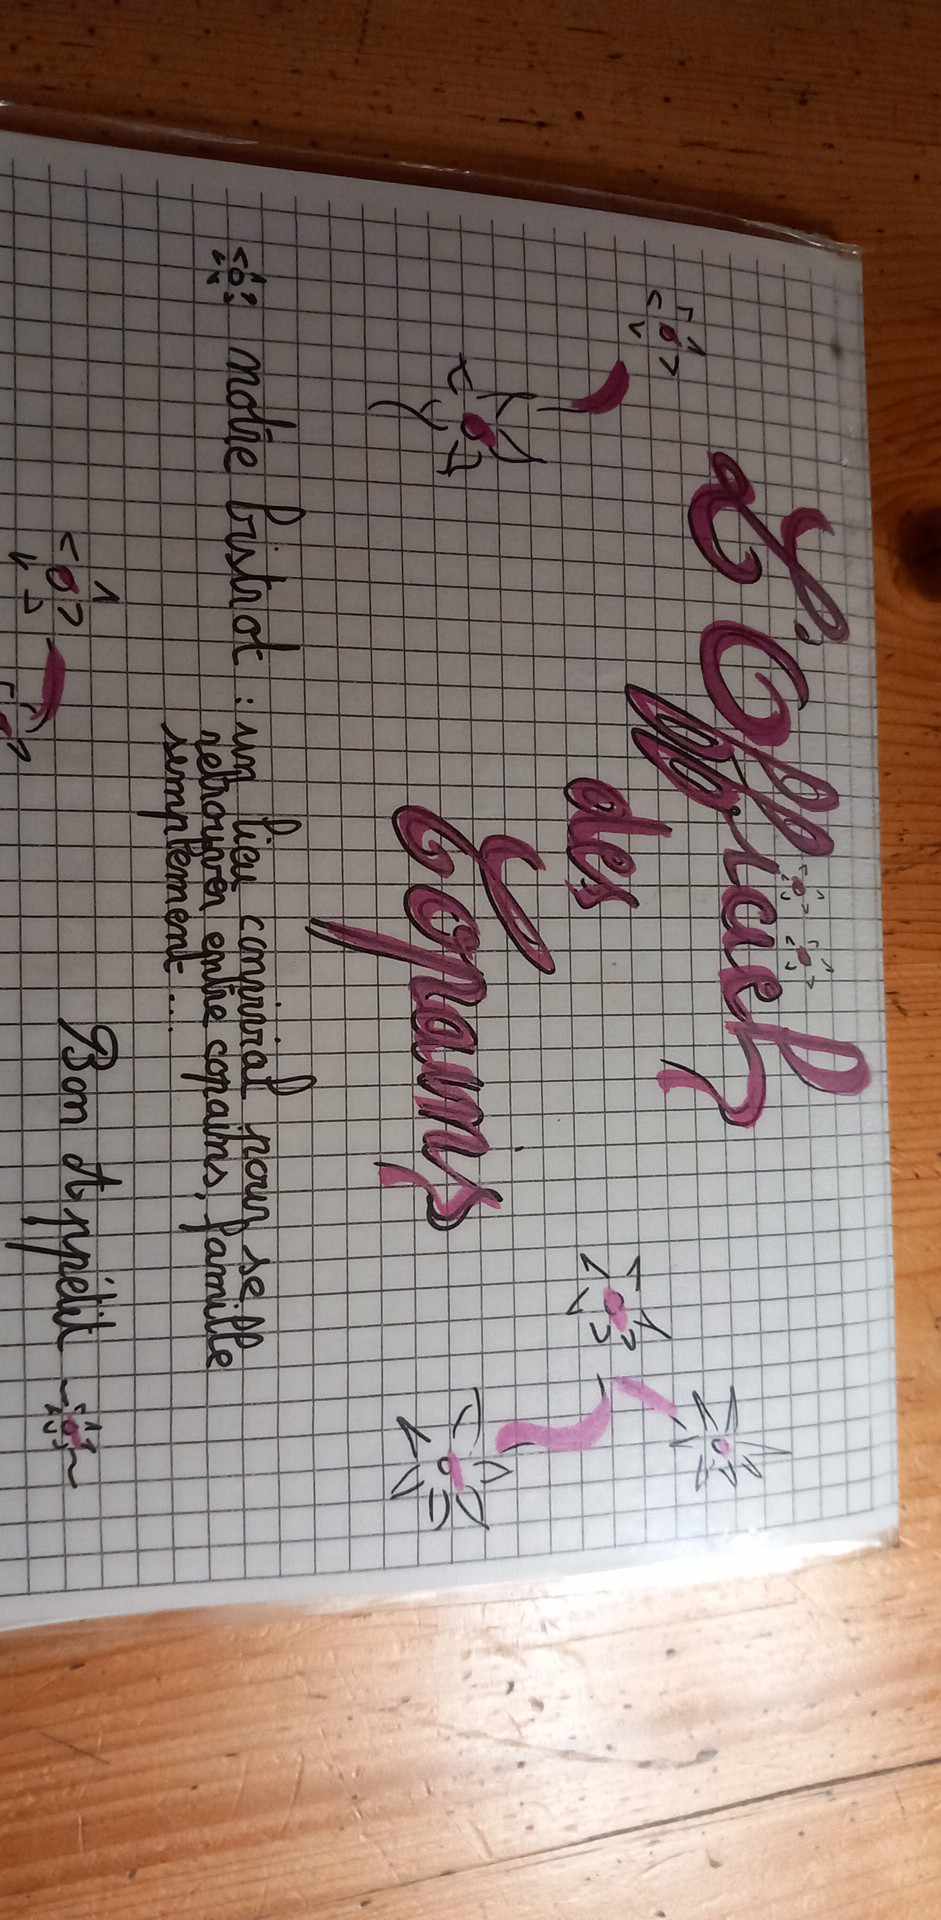 L'Officiel
des
Copains
notre bistrot : un lieu convivial pour se
retrouver entre copains, famille
simplement...
Bon Appétit